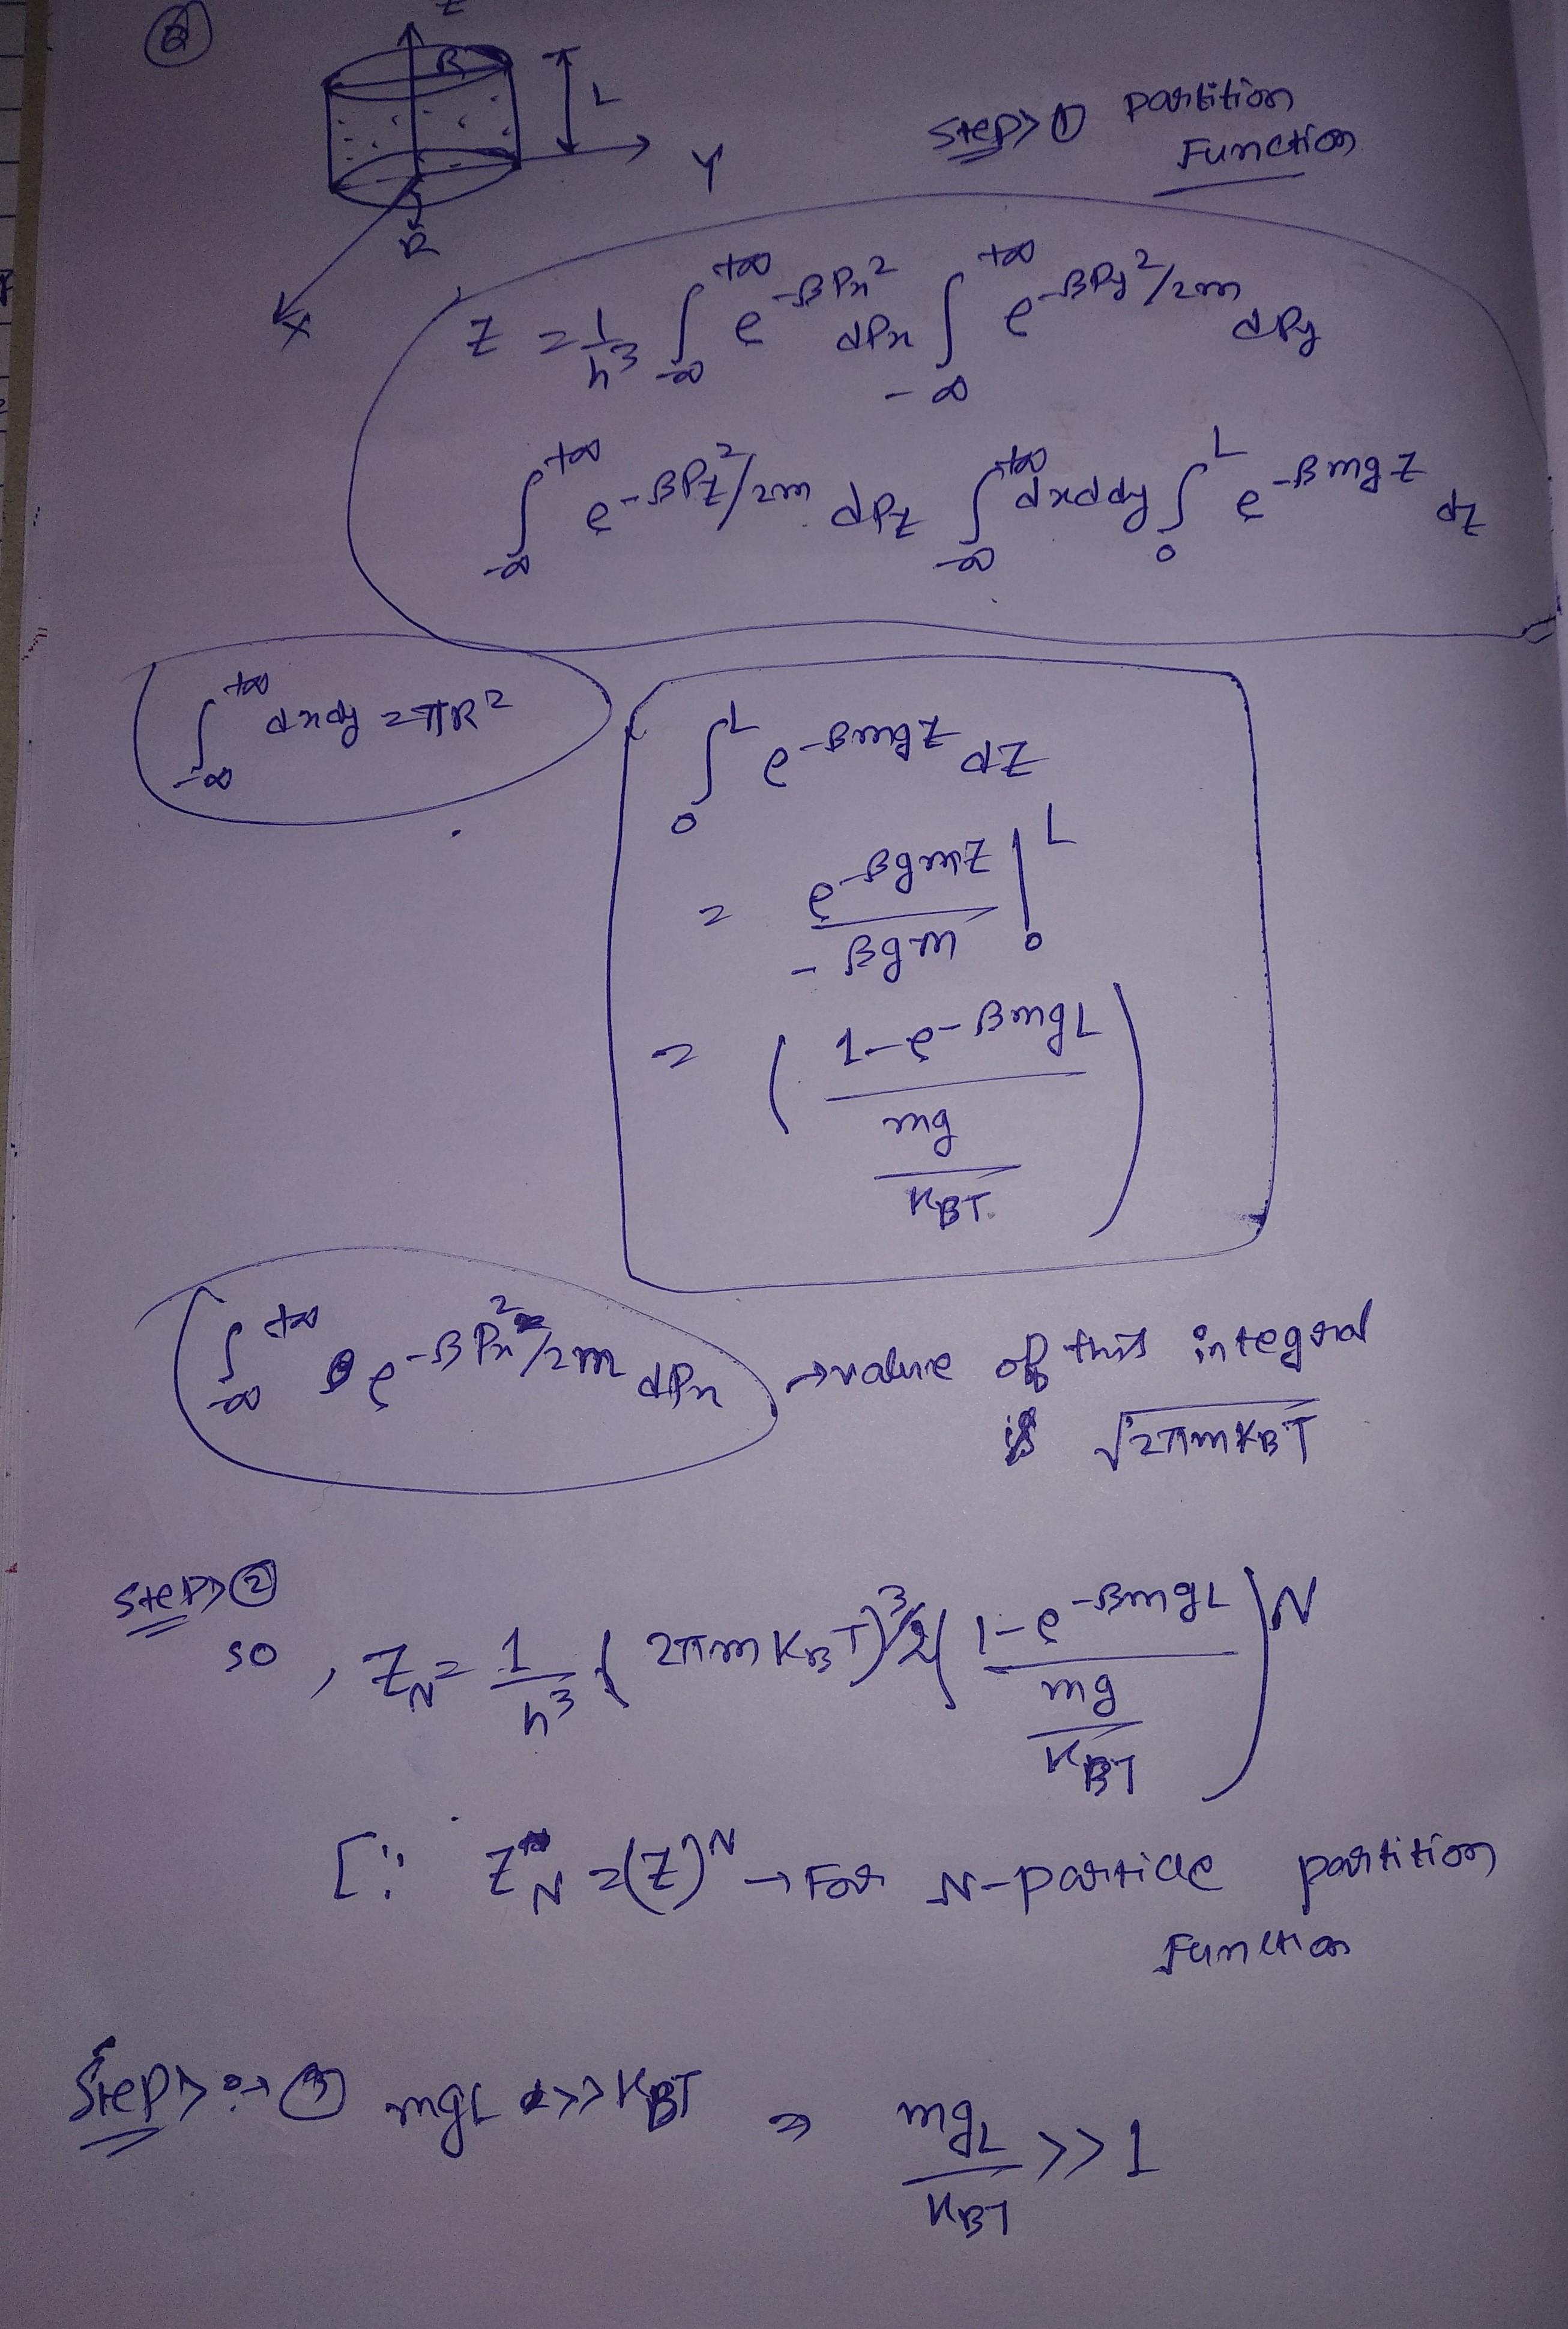 Q
Z
R
L
Y
R
X
Step> ① partition
Function
Z = 1/h³ ∫_{-∞}^{+∞} e^{-βPx²} dPx ∫_{-∞}^{+∞} e^{-βPy²/2m} dPy
∫_{-∞}^{+∞} e^{-βPz²/2m} dPz ∫_{-∞}^{+∞} dxddy ∫_0^L e^{-βmgz} dz
∫_{-∞}^{+∞} dxdy = πR²
∫_0^L e^{-βmgz} dz
= e^{-βgmz}/-βgm |_0^L
= (1-e^{-βmgL} / mg/KBT)
∫_{-∞}^{+∞} e^{-βPx²/2m} dPx → value of this integral
is √2πmKBT
Step> ②
so, Z_N = 1/h³ (2πmKBT)^{3/2} (1-e^{-βmgL} / mg/KBT)^N
[∵ Z_N = (Z)^N → For N-particle partition
Function
Step> :→ ③ mgL >> KBT ⇒ mgL/KBT >> 1